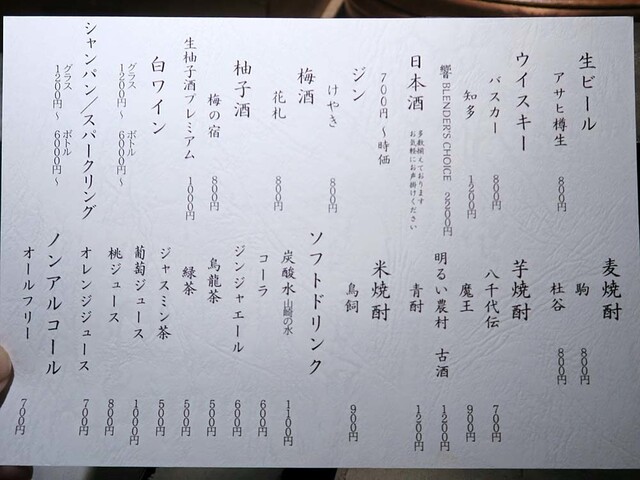 生ビール
アサヒ樽生 800円
ウイスキー
バスカー 800円
知多 1200円
響 BLENDER'S CHOICE 2200円
日本酒
多数揃えております
お気軽にお声掛けください
700円〜時価
ジン
けやき 800円
梅酒
花札 800円
柚子酒
梅の宿 800円
生柚子酒プレミアム 1000円
白ワイン
グラス ボトル
1200円〜 6000円〜
シャンパン/スパークリング
グラス ボトル
1200円〜 6000円〜
麦焼酎
駒 800円
杜谷 800円
芋焼酎
八千代伝 700円
魔王 900円
明るい農村 古酒 1200円
青酎 1200円
米焼酎
鳥飼 900円
ソフトドリンク
炭酸水 山崎の水 1100円
コーラ 600円
ジンジャエール 600円
烏龍茶 500円
緑茶 500円
ジャスミン茶 500円
葡萄ジュース 1000円
桃ジュース 800円
オレンジジュース 700円
ノンアルコール
オールフリー 700円